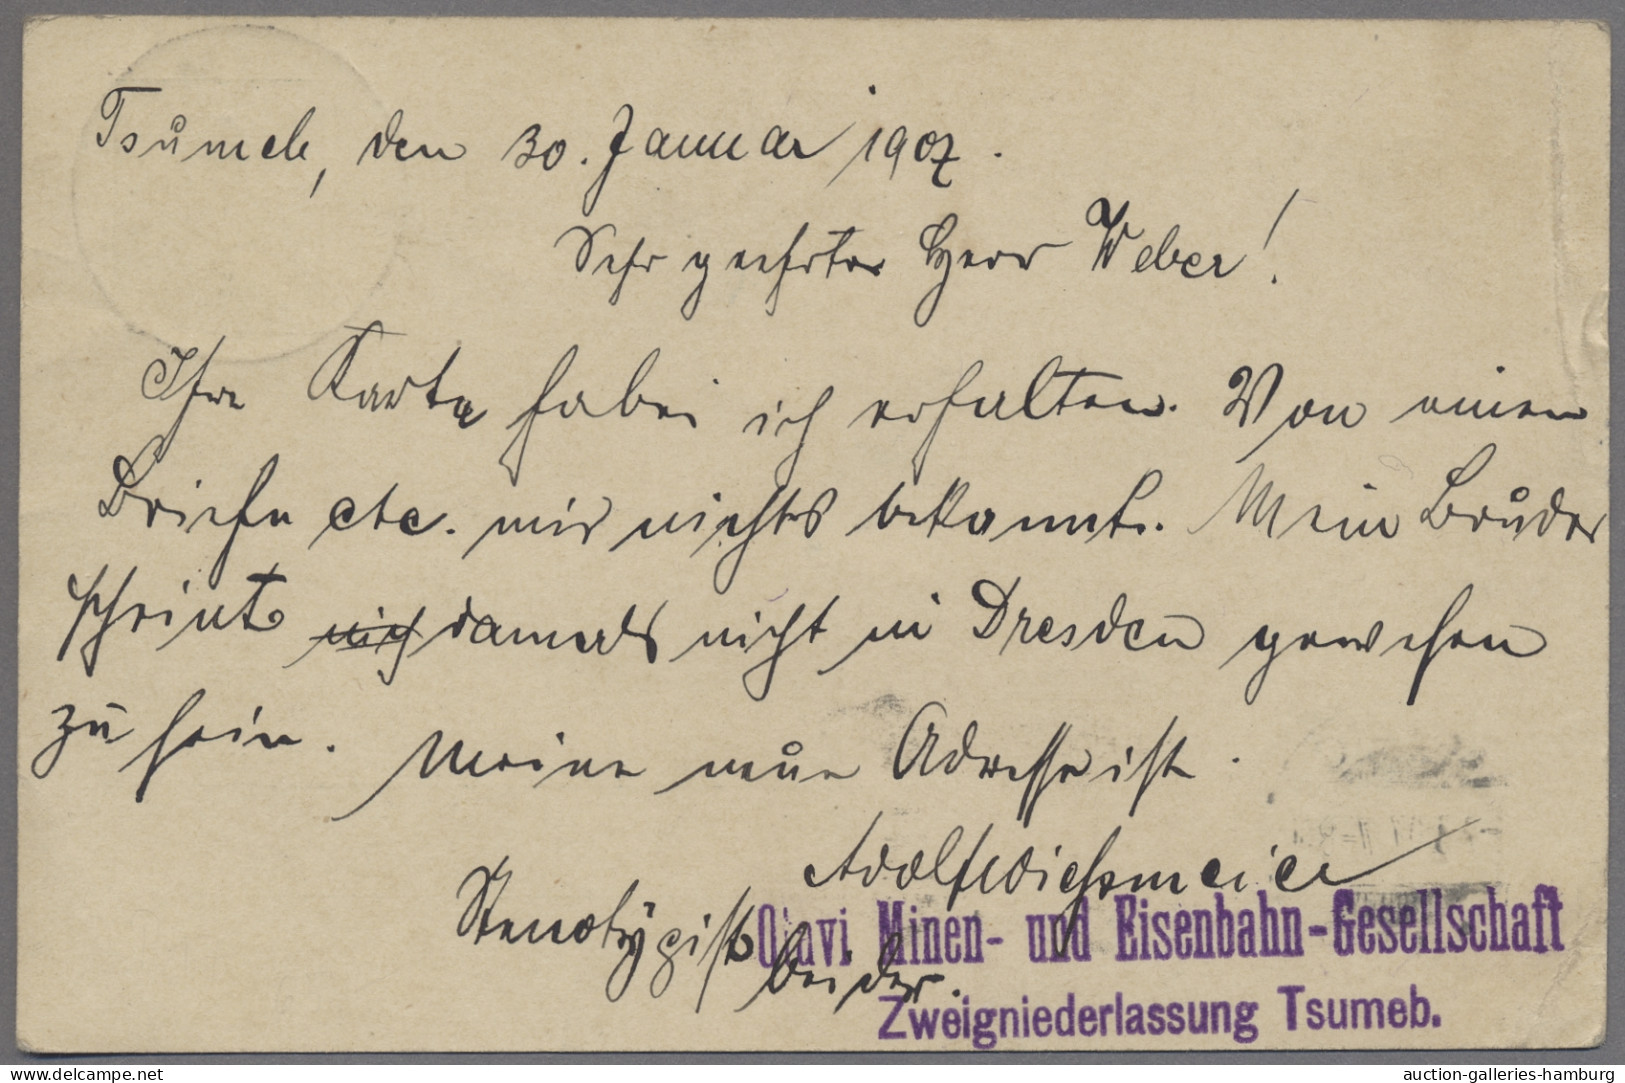 Tsumeb, den 30. Januar 1907.
Sehr geehrter Herr Weber!
Ihre Karte habe ich erhalten. Von einem
Briefe etc. mir nichts bekannt. Mein Bruder
scheint nich damals nicht in Dresden gewesen
zu sein. Meine neue Adresse ist.
Adolf Wichsmeier
Stenotypist bei der.
Otavi Minen- und Eisenbahn-Gesellschaft
Zweigniederlassung Tsumeb.
auction-galleries-hamburg